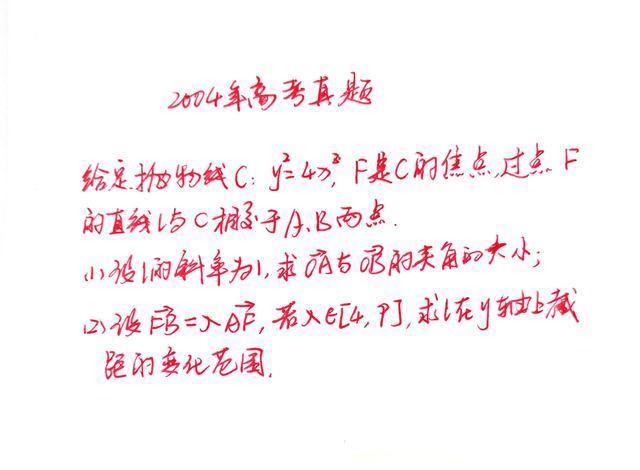 2004年高考真题
给定抛物线C: y²=4x², F是C的焦点,过点F
的直线l与C相交于A、B两点.
(1) 设l的斜率为1,求OA与OB的夹角的大小;
(2) 设FB=λAF,若λ∈[4,9],求l在y轴上截
距的变化范围.